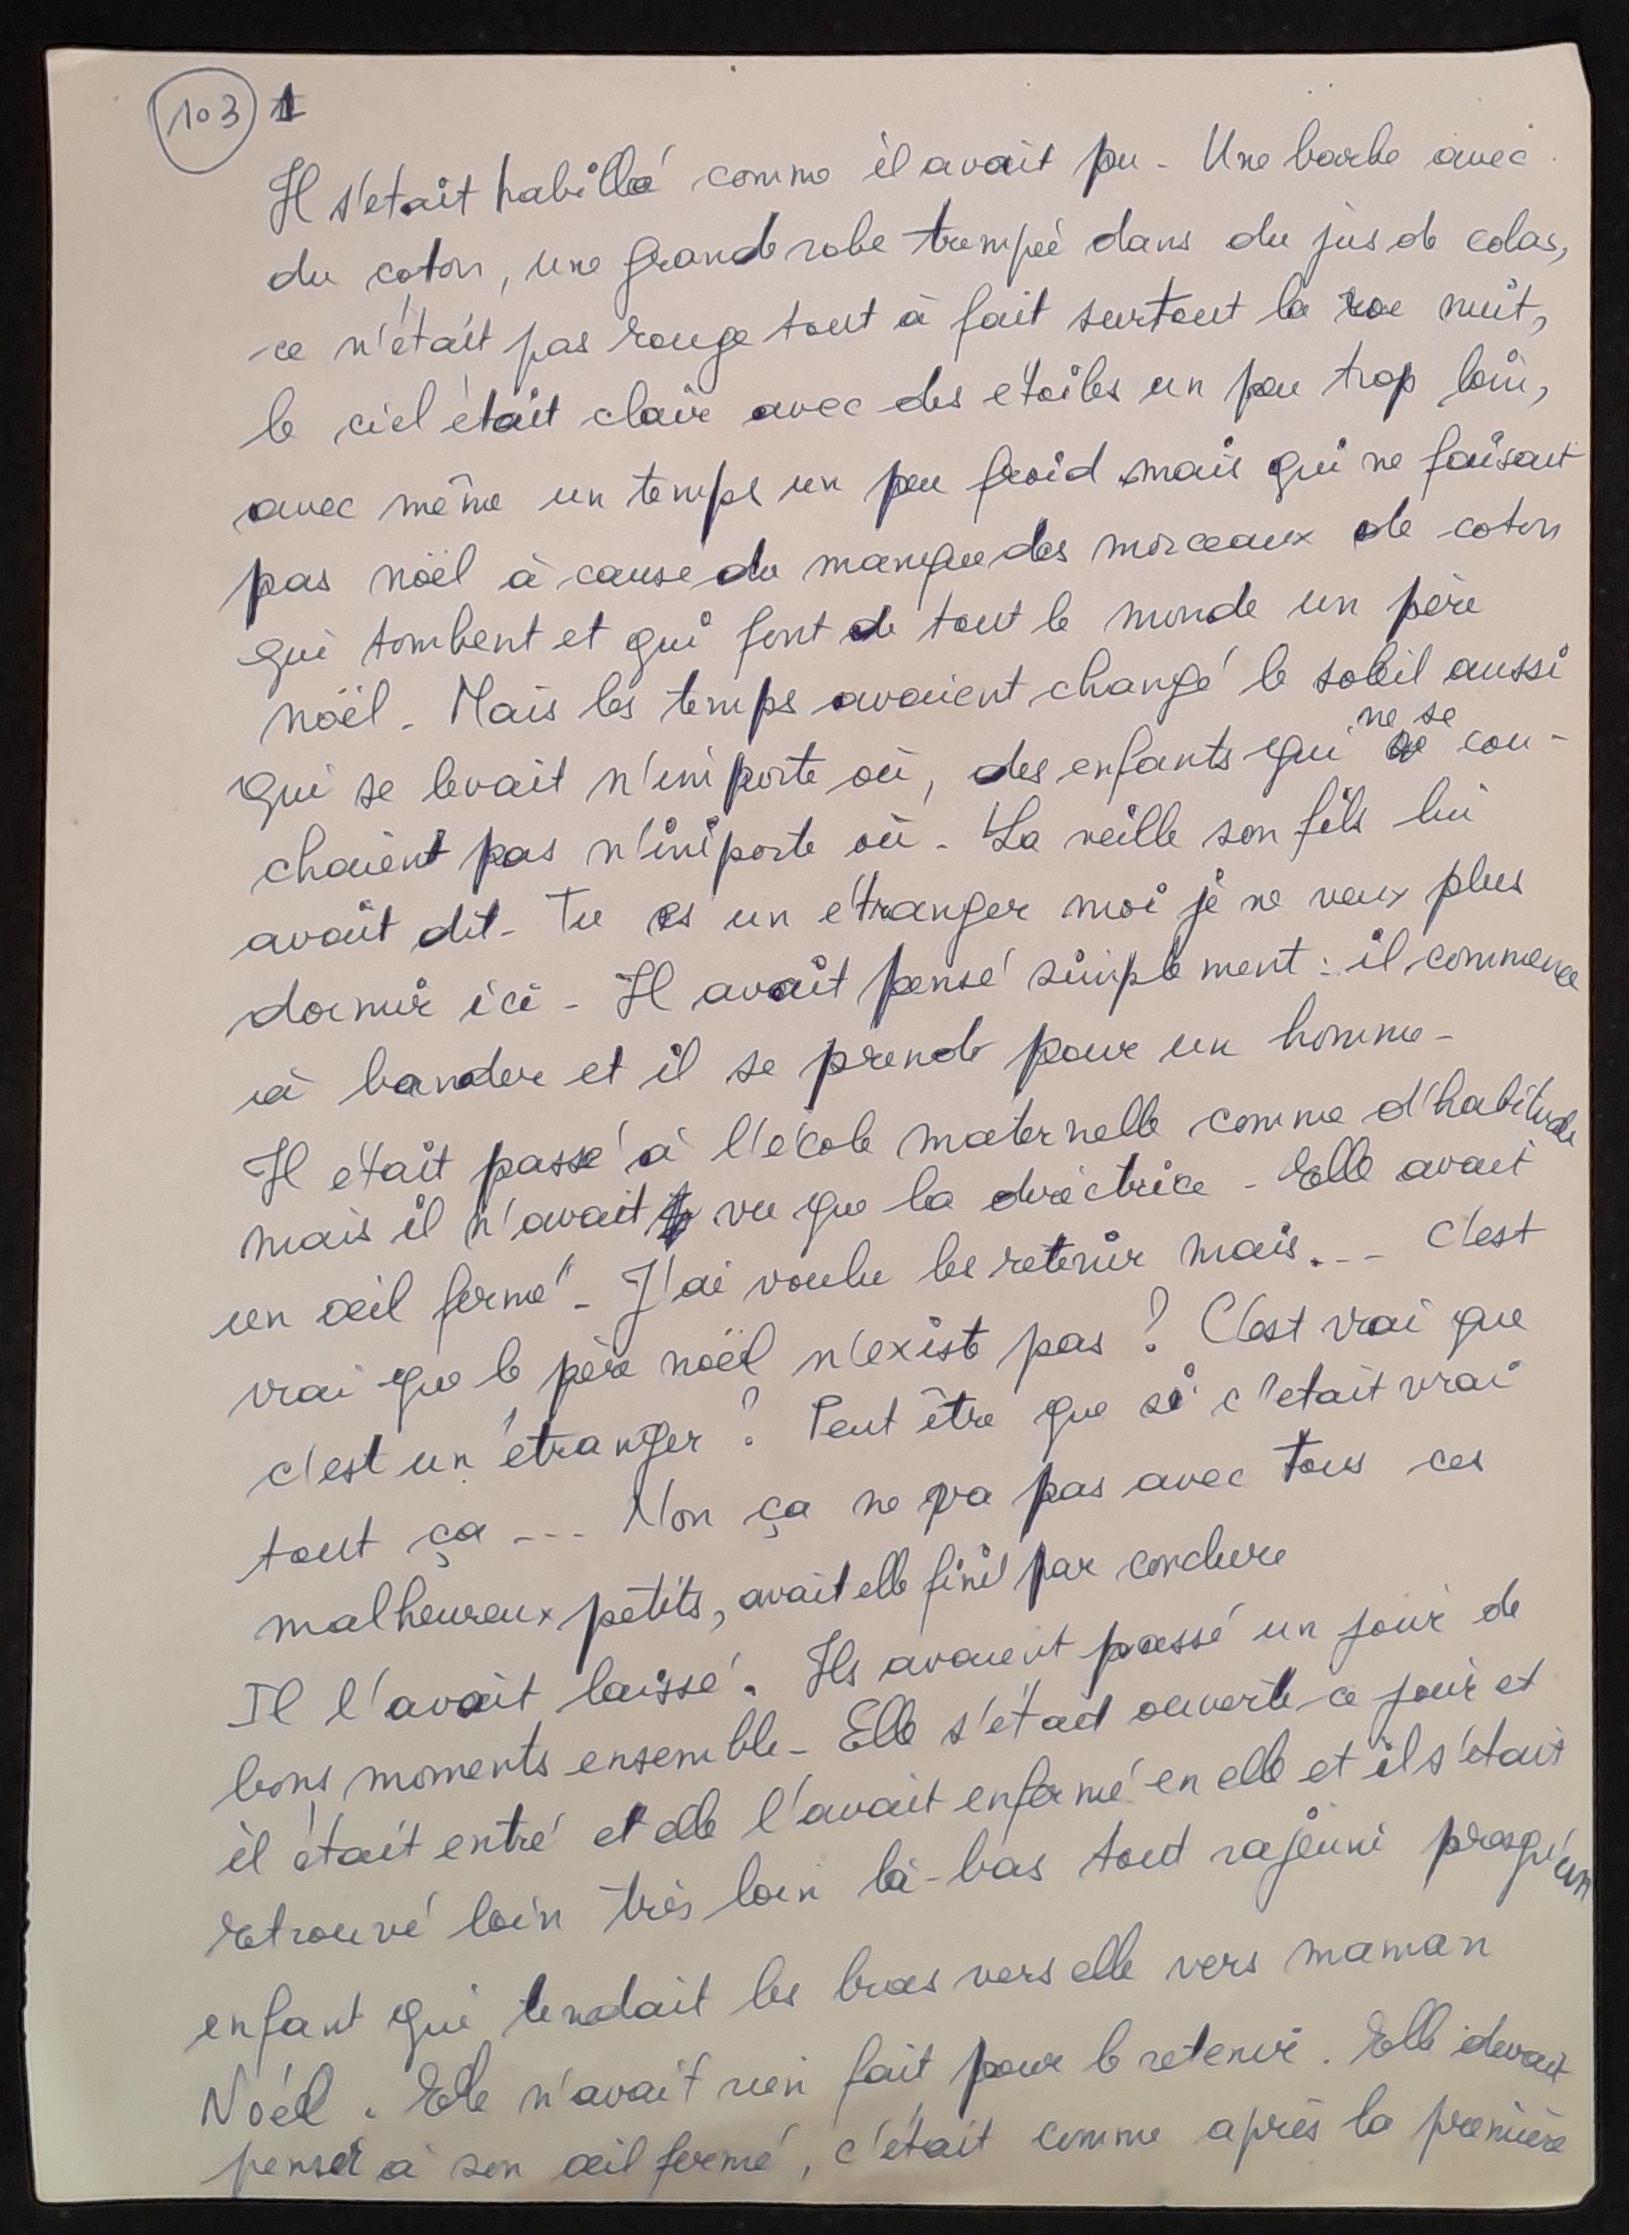 103 1
Il s'était habillé comme il avait pu - Une barbe avec
du coton, une grande robe trempée dans du jus de colas,
ce n'était pas rouge tout à fait surtout la nuit,
le ciel était clair avec des étoiles un peu trop loin,
avec même un temps un peu froid mais qui ne faisait
pas nöel à cause du manque des morceaux de coton
qui tombent et qui font de tout le monde un père
nöel - Mais les temps avaient changé le soleil aussi
qui se levait n'importe où, des enfants qui ne se cou-
chaient pas n'importe où - La veille son fils lui
avait dit - Tu es un étranger moi je ne veux plus
dormir ici - Il avait pensé simplement : il commence
à bander et il se prend pour un homme -
Il était passé à l'école maternelle comme d'habitude
mais il n'avait vu que la directrice - Elle avait
un œil fermé" - J'ai voulu les retenir mais... - C'est
vrai que le père noël n'existe pas ? C'est vrai que
c'est un étranger ? Peut être que si c'etait vrai
tout ça --- Non ça ne va pas avec tous ces
malheureux petits, avait elle fini par conclure
Il l'avait laissé. Ils avaient passé un jour de
bons moments ensemble - Elle s'était ouverte ce jour et
il était entré et elle l'avait enfermé en elle et il s'était
retrouvé loin très loin là-bas tout rajeuni presqu'un
enfant qui tendait les bras vers elle vers maman
Noël. Elle n'avait rien fait pour le retenir. Elle devait
penser à son œil fermé, c'était comme après la première